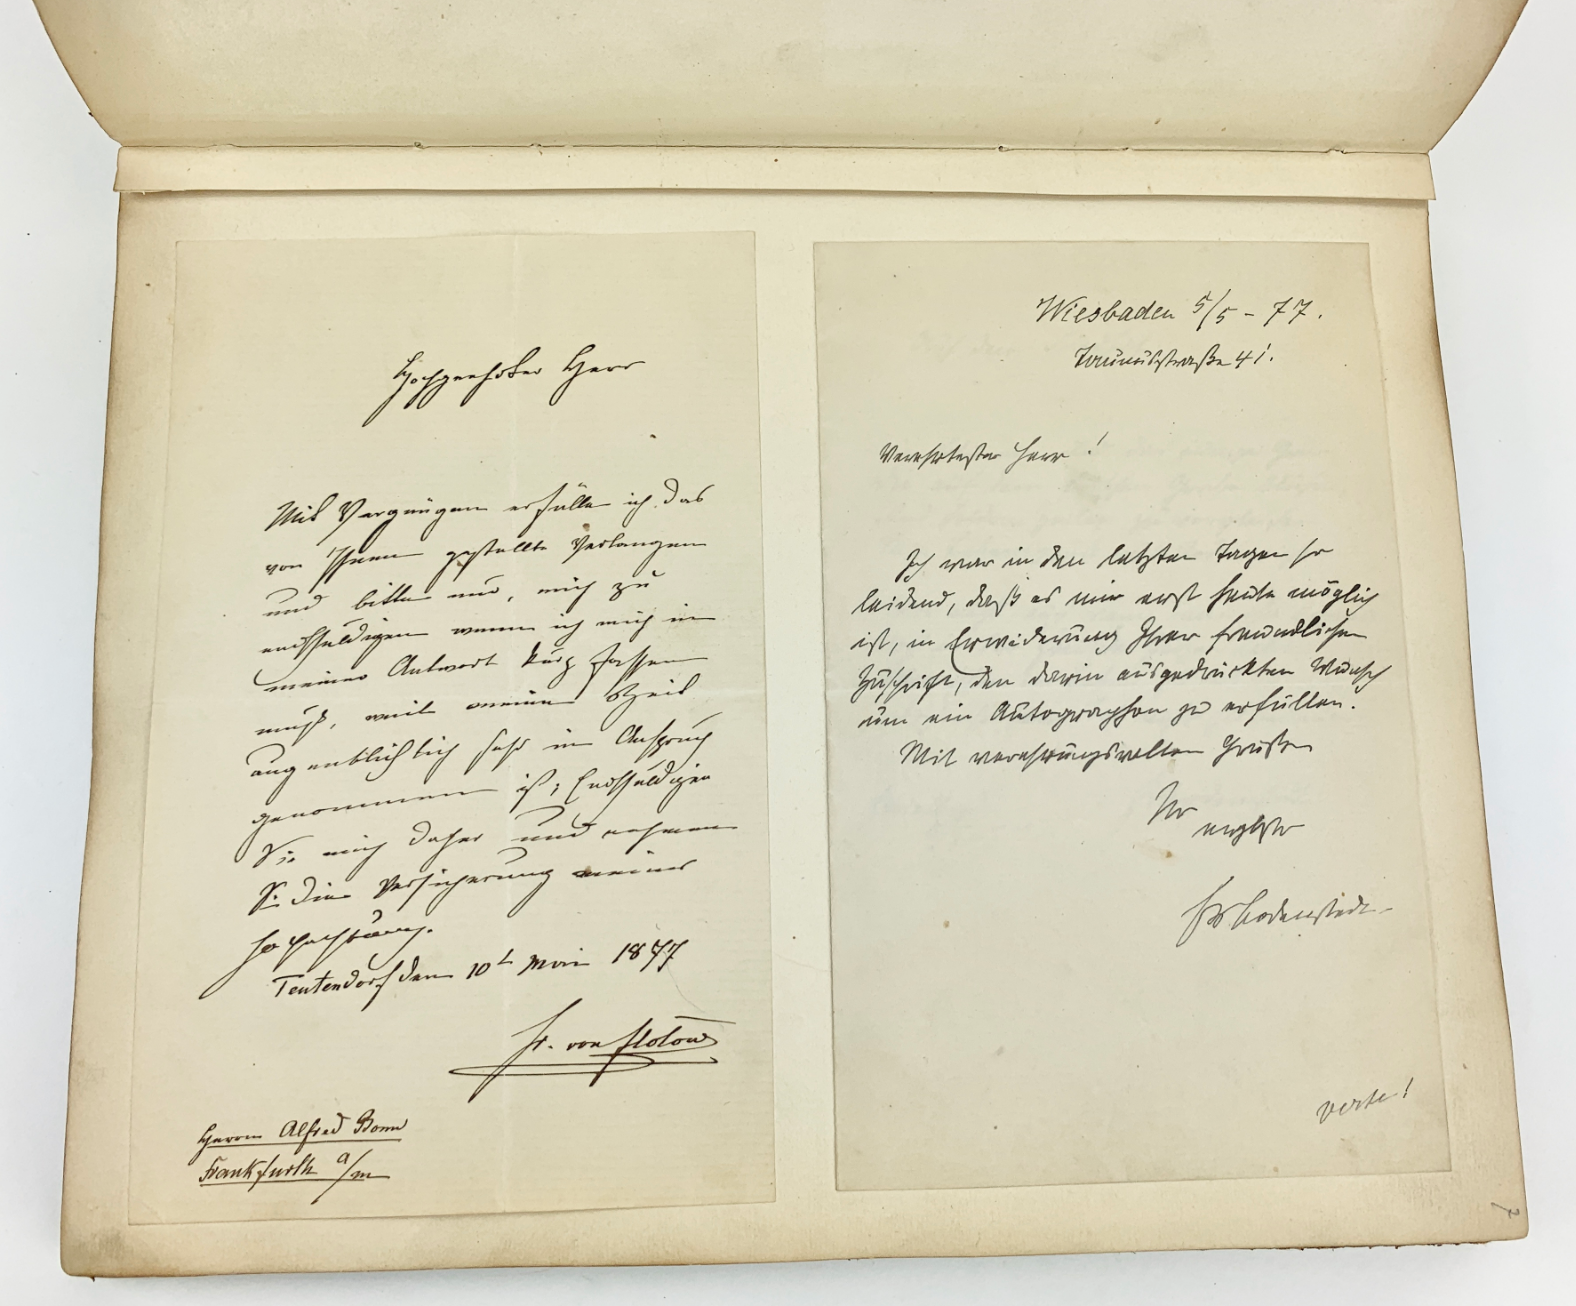 Hochgeehrter Herr
Mit Vergnügen erfülle ich das
von Ihnen gestellte Verlangen
und bitte nur, mich zu
entschuldigen wenn ich mich in
meiner Antwort kurz fassen
muß, weil meine Zeit
augenblicklich sehr in Anspruch
genommen ist; Entschuldigen
Sie mich daher und nehmen
Sie die Versicherung meiner
Hochachtung.
Teutendorf den 10t Mai 1877
Fr. von Flotow
Herrn Alfred Bonn
Frankfurth a/m
Wiesbaden 5/5 - 77.
Taunusstraße 41.
Verehrtester Herr!
Ich war in den letzten Tagen so
leidend, daß es mir erst heute möglich
ist, in Erwiderung Ihrer freundlichen
Zuschrift, den darin ausgedrückten Wunsch
um ein Autographon zu erfüllen.
Mit verehrungsvollem Gruße
Ihr
ergbster
Fr Bodenstedt
verte!